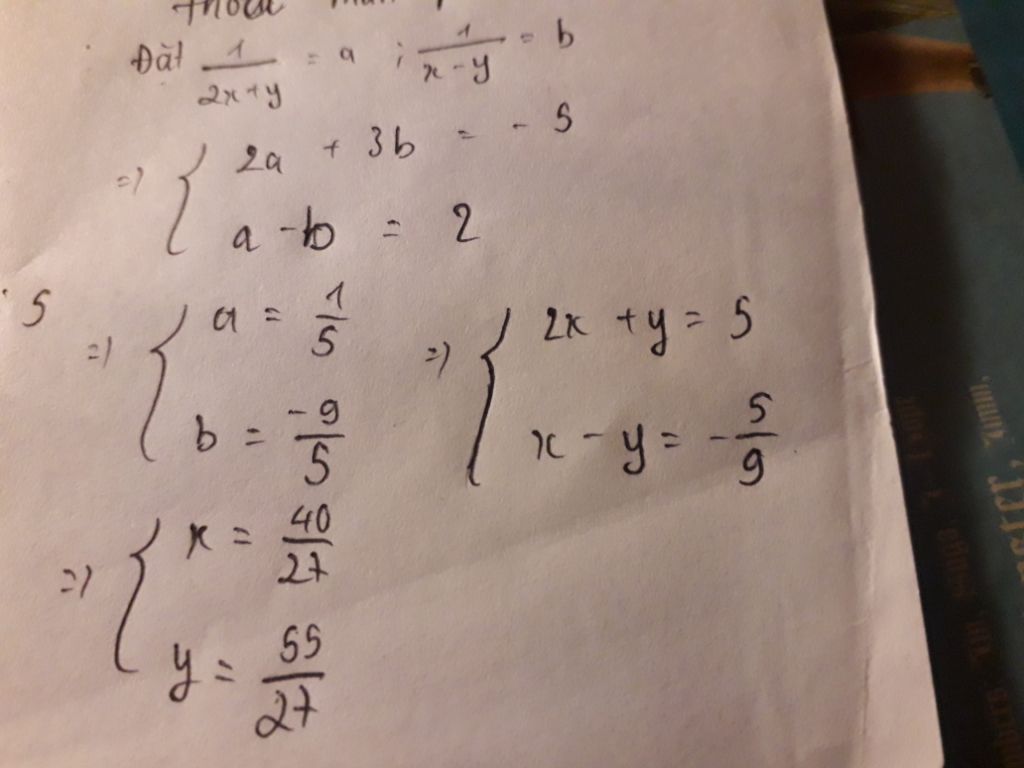 Đặt 1/(2x+y) = a ; 1/(x-y) = b
=) { 2a + 3b = - 5
a - b = 2
5
=) { a = 1/5
b = -9/5
=) { 2x + y = 5
x - y = -5/9
=) { x = 40/27
y = 55/27